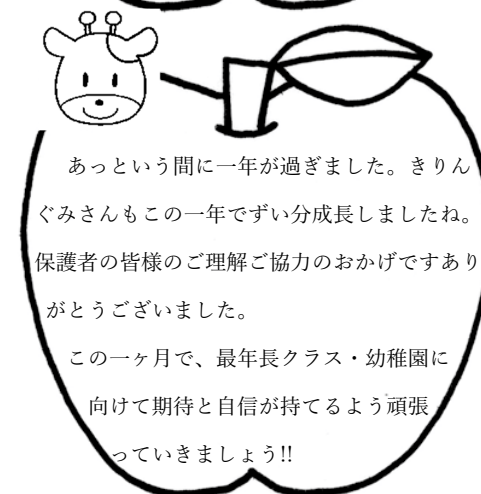 あっという間に一年が過ぎました。きりん
ぐみさんもこの一年でずい分成長しましたね。
保護者の皆様のご理解ご協力のおかげですあり
がとうございました。
この一ヶ月で、最年長クラス・幼稚園に
向けて期待と自信が持てるよう頑張
っていきましょう!!